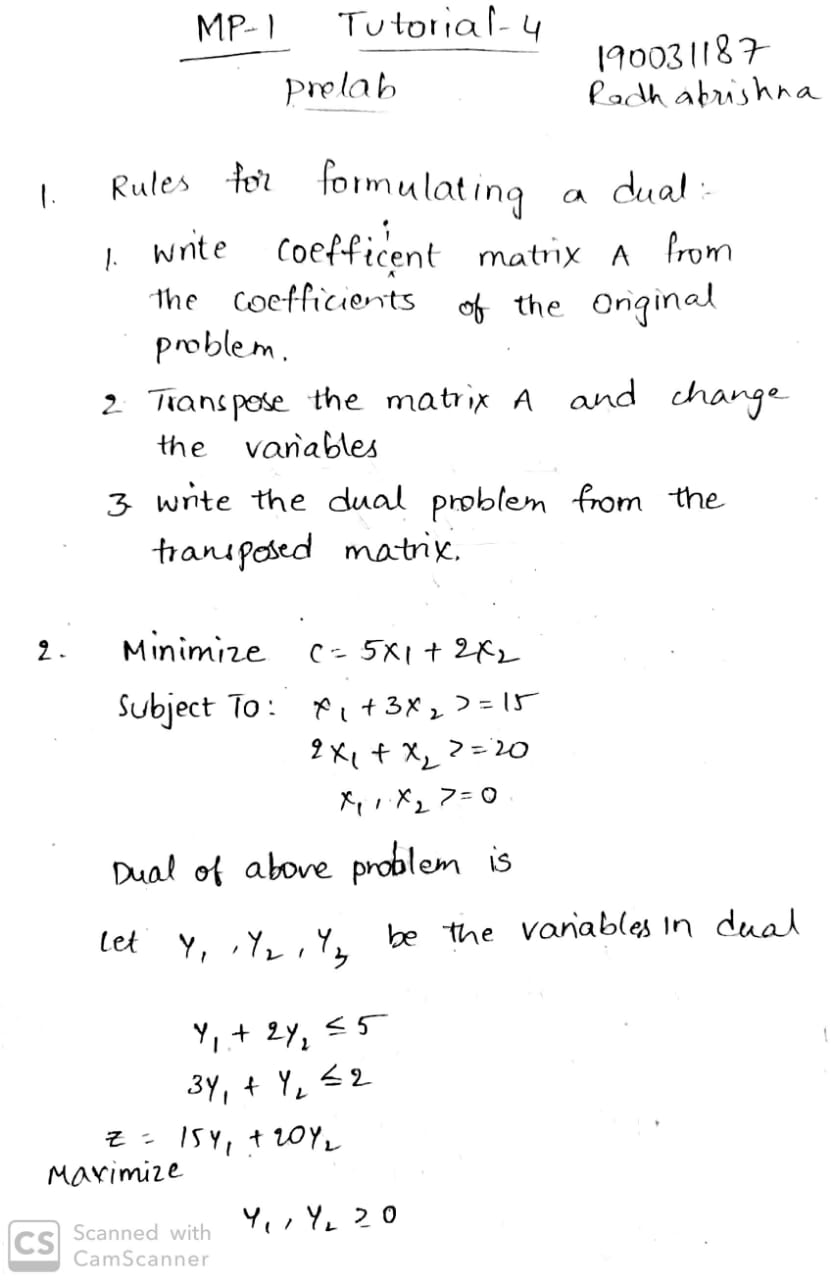 MP-1 Tutorial-4
190031187
prelab
Radhakrishna
1. Rules for formulating a dual:-
1. write coefficient matrix A from
the coefficients of the original
problem.
2 Transpose the matrix A and change
the variables
3 write the dual problem from the
transposed matrix.
2. Minimize C = 5x1 + 2x2
Subject To: x1 + 3x2 >= 15
2x1 + x2 >= 20
x1, x2 >= 0
Dual of above problem is
Let Y1, Y2, Y3 be the variables in dual
Y1 + 2Y2 ≤ 5
3Y1 + Y2 ≤ 2
Z = 15Y1 + 20Y2
Maximize
Y1, Y2 ≥ 0
CS Scanned with
CamScanner